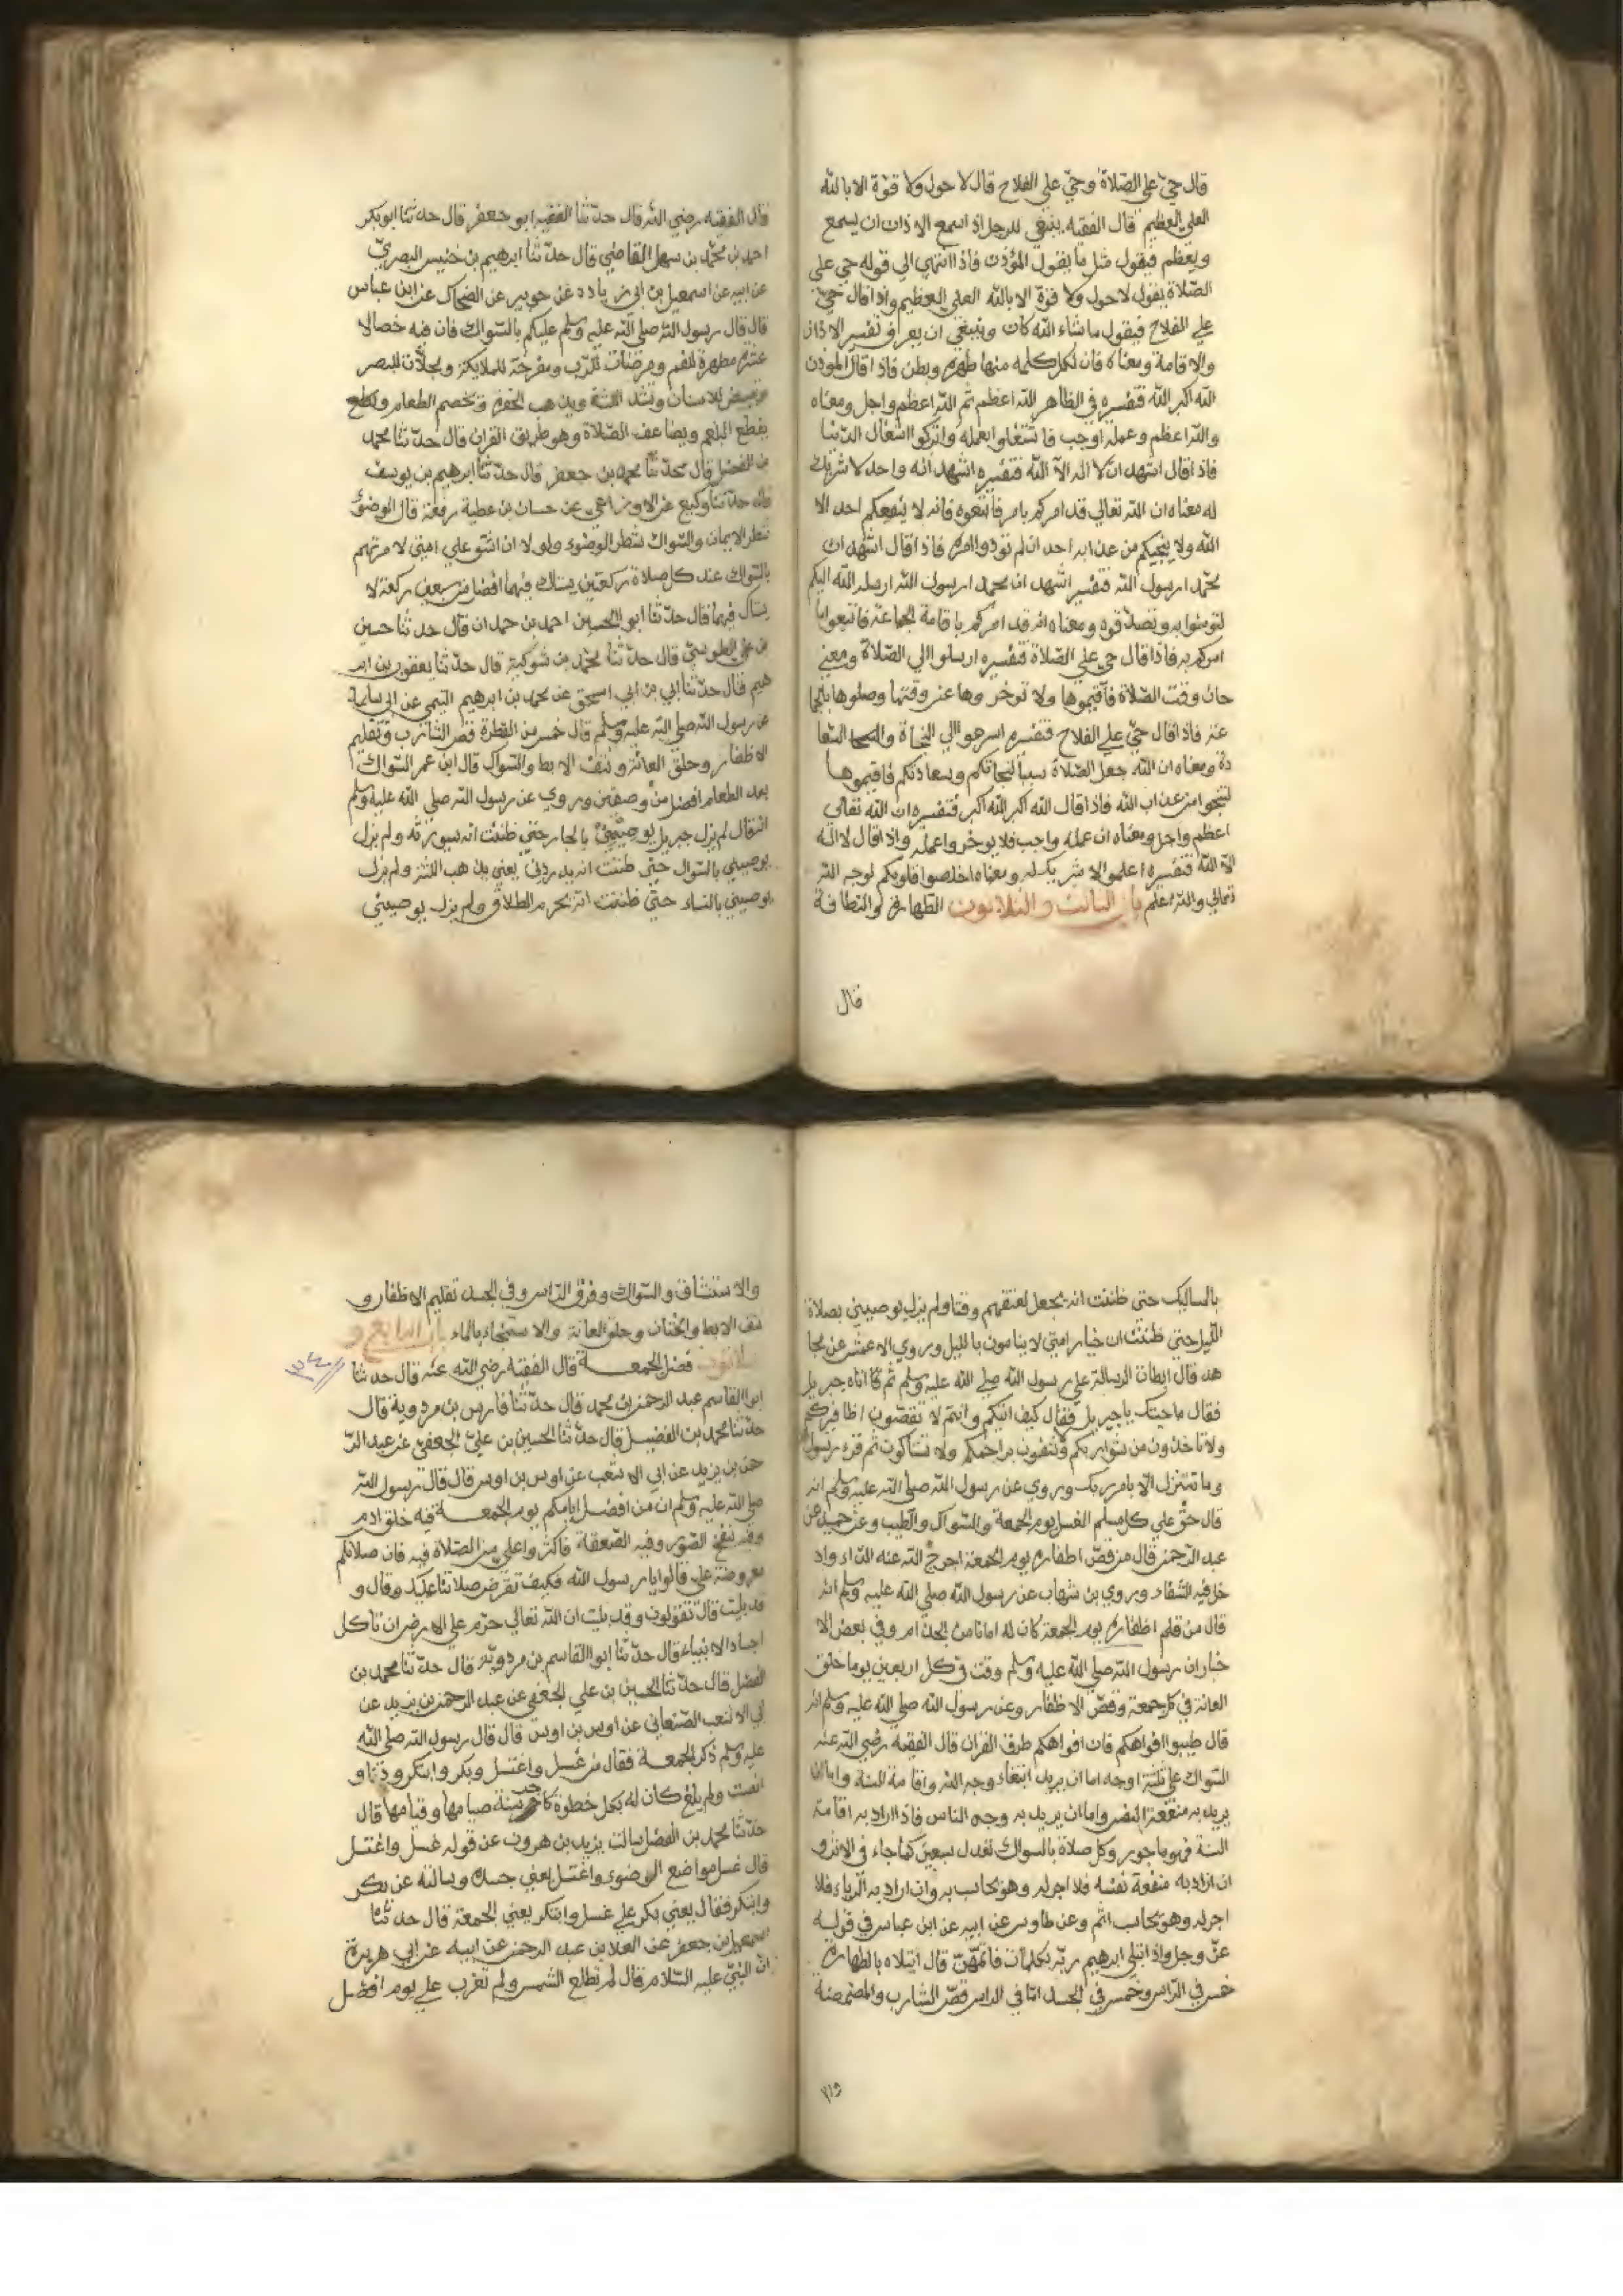 قال حيّ على الصّلاة وحيّ على الفلاح قال لا حول ولا قوّة الا بالله
العلي العظيم قال الفقيه ينبغي للرجل اذ اسمع الاذان ان يسمع
ويعظم فيقول مثل ما يقول المؤذن فاذا انتهي الي قوله حي على
الصّلاة يقول لا حول ولا قوة الا بالله العلي العظيم واذا قال حيّ
علي الفلاح فيقول ما شاء الله كان وينبغي ان يعرف تفسير الاذان
والاقامة ومعناه فان لكل كلمه منها ظهر وبطن فاذا قال المؤذن
الله اكبر الله فتفسيره في الظاهر الله اعظم ثم الله اعظم واجل ومعناه
والله اعظم وعمله اوجب فاشتغلوا بعمله واتركوا اشغال الدنيا
فاذا قال اشهد ان لا اله الاّ الله فتفسيره اشهد انه واحد لا شريك
له معناه ان الله تعالي قد امركم بامر فاتبعوه فانه لا ينفعكم احد الا
الله ولا ينجيكم من عذابه احد ان لم تودوا امره فاذا قال اشهد ان
محمّد ا رسول الله فتفسيره اشهد ان محمد ا رسول الله ارسله الله اليكم
لتومنوا به وتصدّقوه ومعناه انه قد امركم باقامة الجماعة فاتبعوا ما
امركم به فاذا قال حي على الصّلاة فتفسيره ارسلوا الي الصّلاة ومعني
حان وقت الصّلاة فاقيموها ولا توخروها عن وقتها وصلوها بالجما
عة فاذ اقال حيّ علي الفلاح فتفسيره اسرعوا الي النجاة والسعا
دة ومعناه ان الله جعل الصّلاة سبباً لنجاتكم وسعادتكم فاقيموها
لتنجوا من عذاب الله فاذا قال الله اكبر الله اكبر فتفسيره ان الله تعالي
اعظم واجل ومعناه ان عمله واجب فلا يوخروا عمله واذ اقال لا اله
الاّ الله فتفسيره اعلموا لا شريك له ومعناه اخلصوا قلوبكم لوجه الله
تعالي والله اعلم باب الثالث والثلاثون الطهارة والنظافة
قال
قال الفقيه رضي الله قال حدّثنا الفقيه ابو جعفر قال حدثنا ابو بكر
احمد بن محمّد بن سهل القاضي قال حدّثنا ابرهيم بن خنيس البصريّ
عن ابيه عن اسمعيل بن ابي زياد عن جويبر عن الضحاك عن ابن عباس
قال قال رسول الله صلي الله عليه وسلم عليكم بالسّواك فان فيه خصالا
عشرة مطهرة للفم ومرضات للرّب ومفرحة للملايكة ومجلات للبصر
وتبيض للاسنان وتشد اللثة ويذهب الحفر وتخصم الطعام
يقطع البلغم ويضاعف الصّلاة وهو طريق القران قال حدّثنا محمد
بن الفضل قال حدّثنا محمد بن جعفر قال حدثنا ابرهيم بن يوسف
قال حدّثنا وكيع عن الاوزاعي عن حسان بن عطية رفعه قال الوضؤ
شطر الايمان والسّواك شطر الوضوء ولو لا ان اشق علي امتي لامرتهم
بالسّواك عند كل صلاة ركعتين يستاك فيهما افضل من سبعين ركعة لا
يستاك فيهما قال حدّثنا ابو الحسين احمد بن حمدان قال حدثنا حسين
بن علي الطوسيّ قال حدّثنا محمّد بن شوكية قال حدّثنا يعقوب بن ابر
هيم قال حدّثنا ابي بن ابي اسحق عن محمد بن ابرهيم التيمي عن ابي سلمة
عن رسول الله صلي الله عليه وسلم قال خمس من الفطرة قص الشارب وتقليم
الاظفار وحلق العانة ونتف الابط والسّواك قال ابن عمر السّواك
بعد الطعام افضل من وصفتين وروي عن رسول الله صلي الله عليه وسلم
انه قال لم يزل جبريل يوصيني بالجار حتي ظننت انه سيورثه ولم يزل
يوصيني بالسّواك حتّي ظننت انه يدردني يعني يذهب اللثة ولم يزل
يوصيني بالنساء حتيّ ظننت انه يحرم الطلاق ولم يزل يوصيني
بالمماليك حتي ظننت انه يجعل لعتقهم وقتا ولم يزل يوصيني بصلاة
اللّيل حتي ظننت ان خيار امتي لا ينامون بالليل وروي الاعمش عن مجا
هد قال ابطات الرسالة علي رسول الله صلي الله عليه وسلم ثم اتاه جبريل
فقال ما حبتك يا جبريل فقال كيف اتيكم وانتم لا تقصّون اظافيركم
ولا تاخذون من شواربكم وتنقون براجمكم ولا تستاكون ثم قرء رسول
وما نتنزل الاّ بامر ربك وروي عن رسول الله صلي الله عليه وسلم انه
قال حقّ علي كل مسلم الغسل يوم الجمعة والسّواك والطيب وعن حميد بن
عبد الرّحمن قال من قصّ اظفاره يوم الجمعة اخرج الله عنه الدّاء واد
خل فيه الشفاء وروي بن شهاب عن رسول الله صلي الله عليه وسلم انه
قال من قلم اظفاره يوم الجمعة كان له امانا من الجذام وفي بعض الا
خبار ان رسول الله صلي الله عليه وسلم وقت في كل اربعين يوما حلق
العانة في كل جمعة وقصّ الاظفار وعن رسول الله صلي الله عليه وسلم انه
قال طيبوا افواهكم فان افواهكم طرق القران قال الفقيه رضي الله عنه
السّواك على ثلثة اوجه اما ان يريد ابتغاء وجه الله واقامة السنة واما ان
يريد به منفعة النفس واما ان يريد به وجه الناس فاذ اراد به اقامة
السنة فهو ماجور وكل صلاة بالسواك تعدل سبعين كما جاء في الاثر و
ان اراد به منفعة نفسه فلا اجر له وهو يحاسب به وان اراد به الرياء فلا
اجر له وهو يحاسب اثم وعن طاوس عن ابيه عن ابن عباس في قوله
عزّ وجل واذ ابتلي ابرهيم ربّه بكلمات فاتمّهنّ قال ابتلاه بالطهارة
خمس في الرّاس وخمس في الجسد امّا في الراس قصّ الشارب والمضمضة
والا
والاستنشاق والسّواك وفرق الرّاس وفي الجسد تقليم الاظفار و
نتف الابط والختان وحلق العانة والاستنجاء بالماء باب الرابع و
ثلاثون فضل الجمعة قال الفقيه رضي الله عنه قال حدثنا
٣٤
ابوا القاسم عبد الرحمن بن محمد قال حدّثنا فارس بن مردوية قال
حدّثنا محمد بن الفضيل قال حدّثنا الحسين بن عليّ الجعفيّ عن عبد الرّ
حمن بن يزيد عن ابي الاشعب عن اوس بن اوس قال قال رسول الله
صلي الله عليه وسلم ان من افضل ايامكم يوم الجمعة فيه خلق ادم
وفيه نفخ الصّور وفيه الصّعقة فاكثروا علي من الصّلاة فيه فان صلاتكم
معروضة علي قالوا يا رسول الله فكيف تعرض صلاتنا عليك وقال و
قد بليت قال تقولون وقد بليت ان الله تعالي حرّم علي الارض ان تاكل
اجساد الانبياء قال حدّثنا ابوا القاسم بن مردويّه قال حدّثنا محمد بن
الفضل قال حدّثنا الحسين بن علي الجعفي عن عبد الرحمن بن يزيد عن
ابي الاشعب الصّنعاني عن اوس بن اوس قال قال رسول الله صلي الله
عليه وسلم ذكر الجمعة فقال من غسل واغتسل وبكر وابتكر ودنا و
انصت ولم يلغ كان له بكل خطوة كاجر سنة صيامها وقيامها قال
حدّثنا محمد بن الفضل سالت يزيد بن هرون عن قوله غسل واغتسل
قال غسل مواضع الوضوء واغتسل يعني جسده وسالته عن بكر
وابتكر فقال يعني بكر علي غسل وابتكر يعني الجمعة قال حدثنا
اسمعيل بن جعفر عن العلا بن عبد الرحمن عن ابيه عن ابي هريرة
انّ النبيّ عليه السّلام قال لم تطلع الشمس ولم تغرب علي يوم افضل